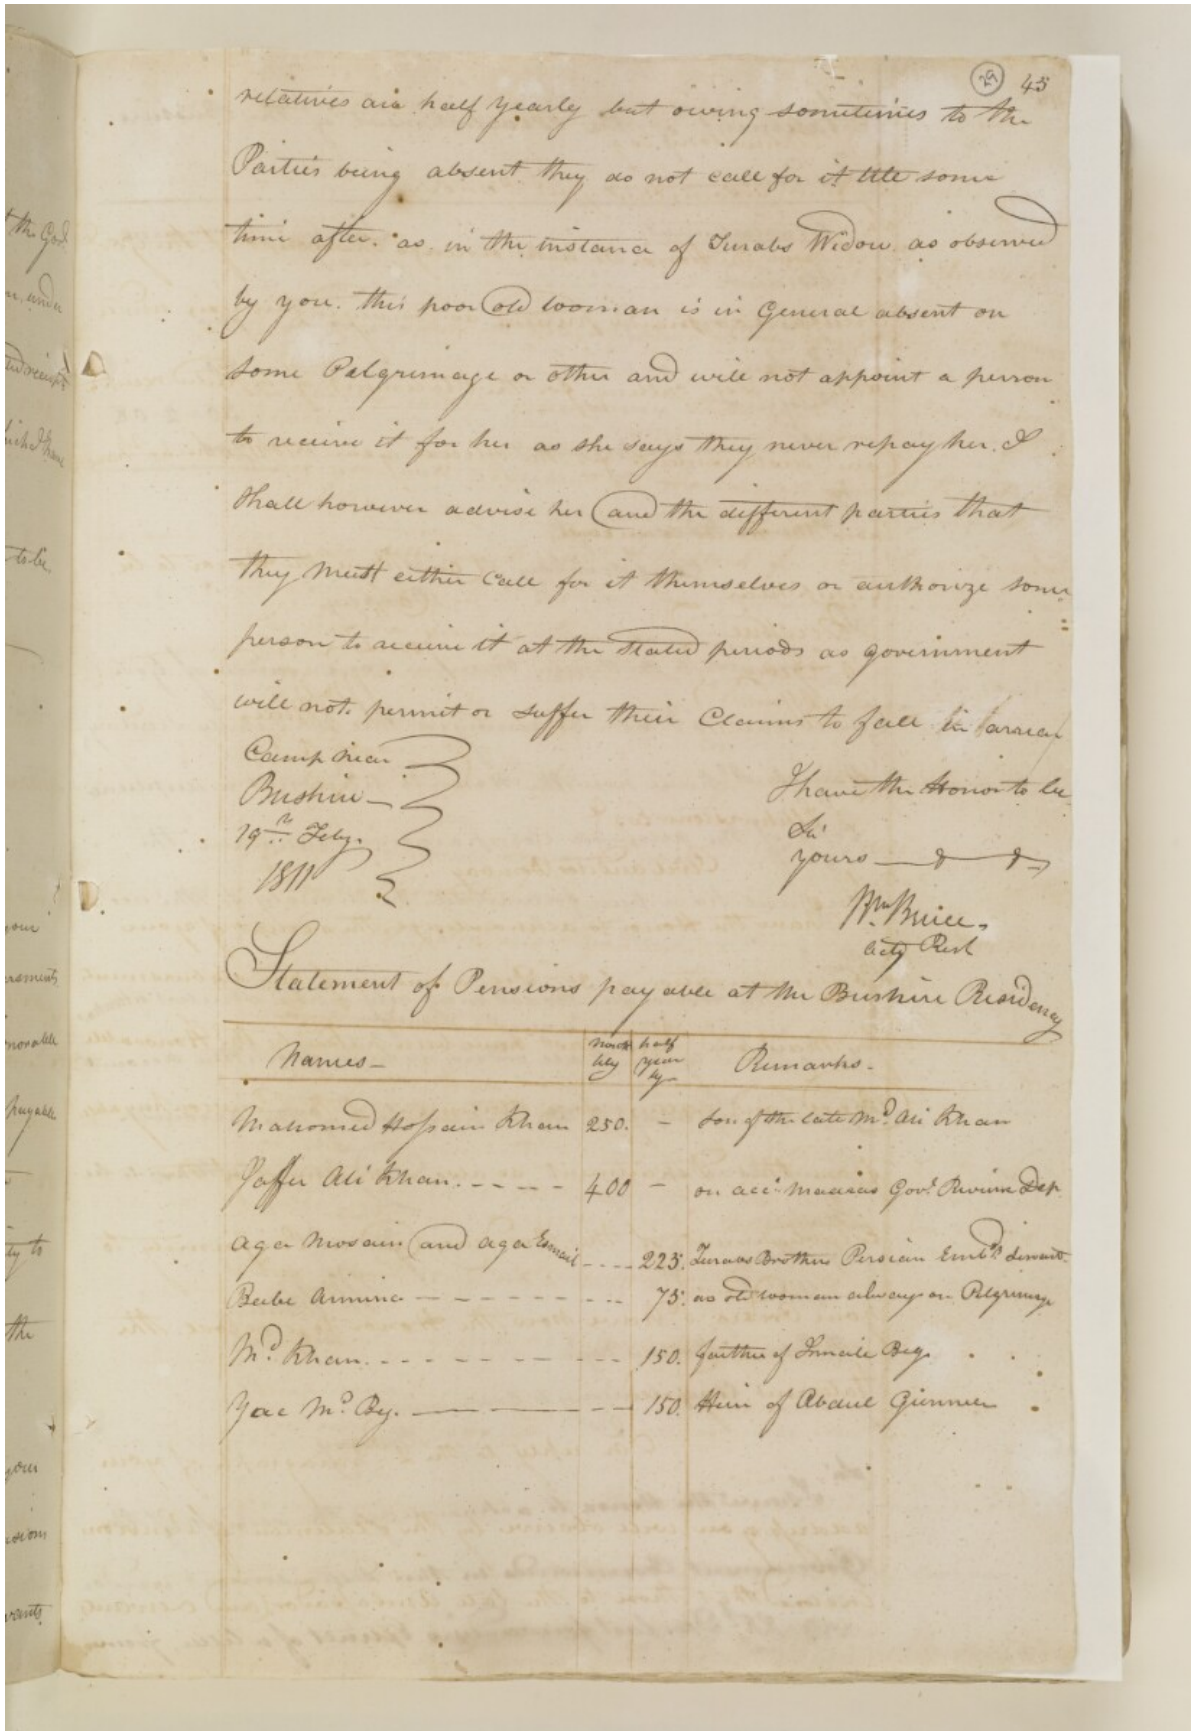 29 45
relatives are half yearly but owing sometimes to the
Parties being absent they do not call for it till some
time after. as in the instance of Turabs Widow as observed
by you. this poor old woman is in General absent on
some Pelgrimage or other and will not appoint a person
to receive it for her as she says they never repay her. I
shall however advise her and the different parties that
they must either Call for it themselves or authorize some
person to receive it at the stated periods as government
will not permit or suffer their Claims to fall in arrear
Camp near
Bushire
19th Feby.
1811
I have the Honor to be
Sir
yours
Wm. Bruce.
actg Resdt
Statement of Pensions payable at the Bushire Residency
Names month lly half year ly Remarks
Mahomed Hossain Khan 250. - son of the late Md. Ali Khan
Jaffer Ali Khan. 400 - on acct. Madras Govt. Dep
Aga Mosain and aga Esmail 225. Turabs Brothers Persian
Beebe Amina 75. as old woman always on Pelgrimage
Md. Khan. 150. farther of Ismaile Beg
Yar Md. Beg. 150. Heir of Abdul
t the God
n. under
to be
your
payable
ty to
the
your